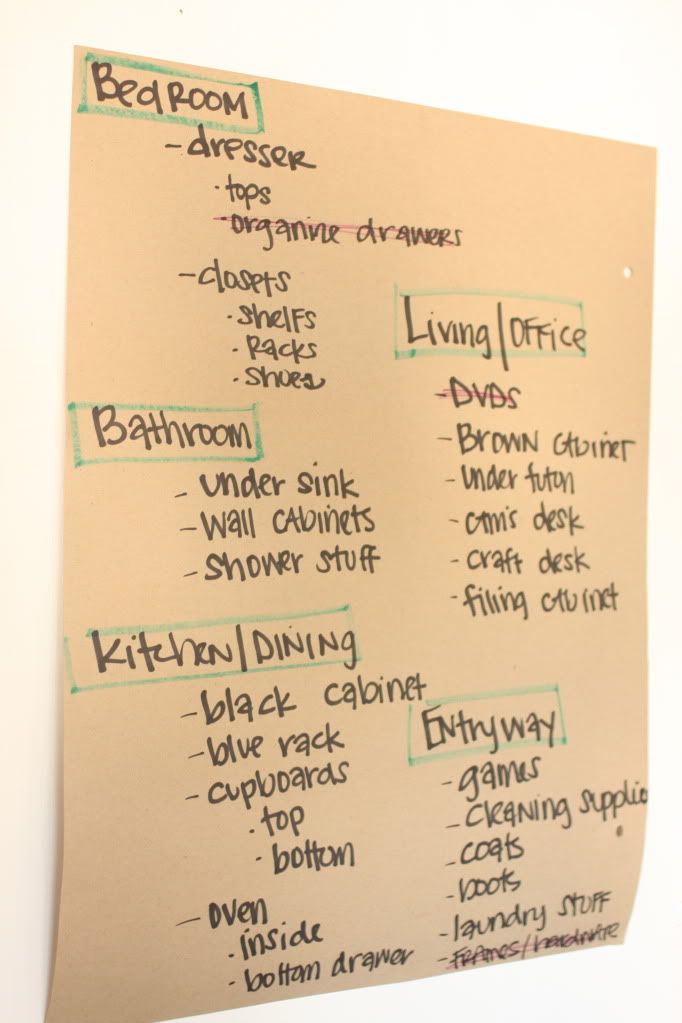 BedROOM
- dresser
· tops
· organine drawers
- closets
· shelfs
· Racks
· shoes
Bathroom
- under sink
- wall cabinets
- shower stuff
Kitchen/DINING
- black cabinet
- blue rack
- cupboards
· top
· bottom
- oven
· inside
· bottom drawer
Living/OFFice
- DVDs
- BROWN cabinet
- under futon
- cam's desk
- craft desk
- filing cabinet
ENtryway
- games
- cleaning supplies
- coats
- boots
- laundry stuff
- frames/hardware